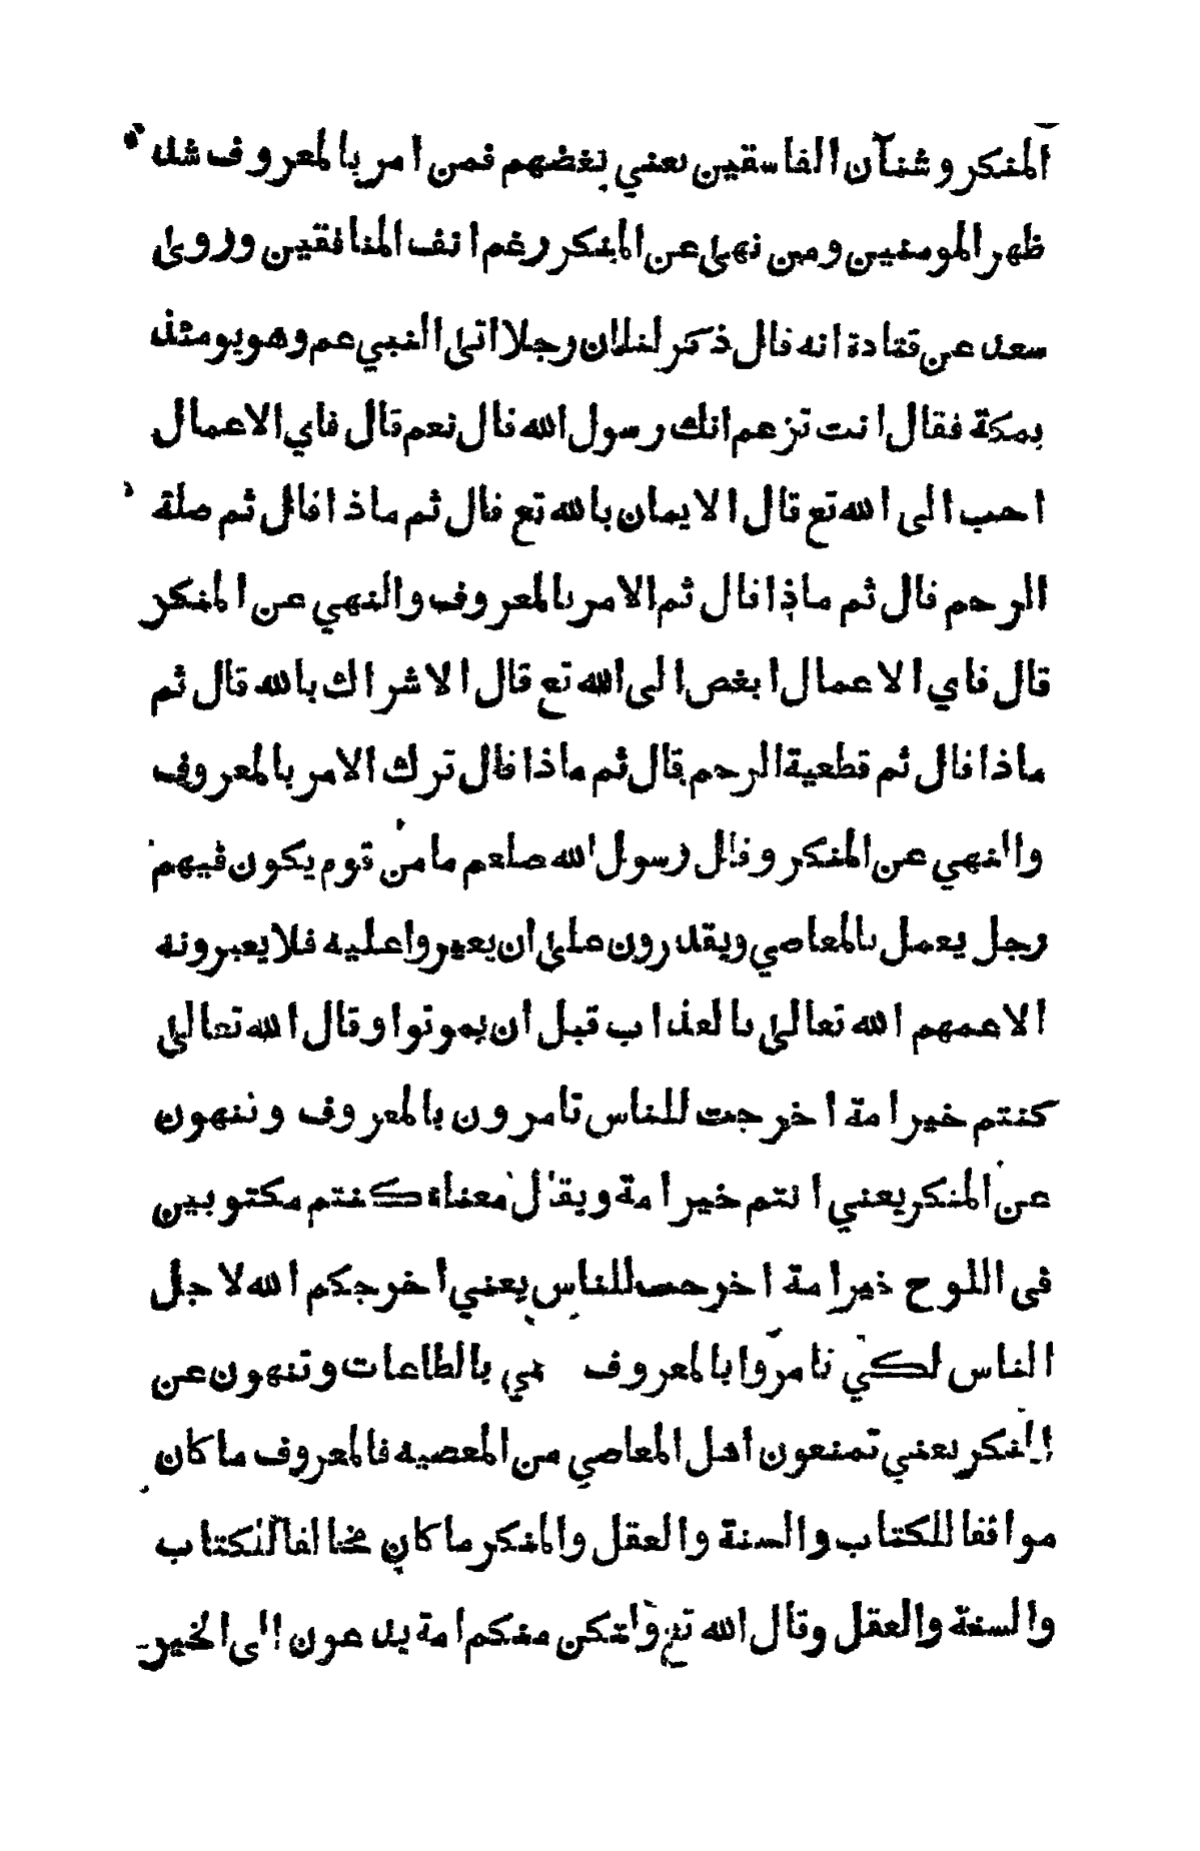 المنكر وشنآن الفاسقين يعني بغضهم فمن امر بالمعروف شد
ظهر المومنين ومن نهى عن المنكر رغم انف المنافقين وروى
سعد عن قتادة انه قال ذكر لنا ان رجلا اتى النبي عم وهو يومئذ
بمكة فقال انت تزعم انك رسول الله قال نعم قال فاي الاعمال
احب الى الله تع قال الايمان بالله تع قال ثم ماذا قال ثم صلة
الرحم قال ثم ماذا قال ثم الامر بالمعروف والنهي عن المنكر
قال فاي الاعمال ابغص الى الله تع قال الاشراك بالله قال ثم
ماذا قال ثم قطعية الرحم قال ثم ماذا قال ترك الامر بالمعروف
والنهي عن المنكر وقال رسول الله صلعم ما من قوم يكون فيهم
رجل يعمل بالمعاصي ويقدرون على ان يعيروا عليه فلا يعيرونه
الا عمهم الله تعالى بالعذاب قبل ان يموتوا وقال الله تعالى
كنتم خير امة اخرجت للناس تامرون بالمعروف وتنهون
عن المنكر يعني انتم خير امة ويقال معناه كنتم مكتوبين
فى اللوح خير امة اخرجت للناس يعني اخرجكم الله لاجل
الناس لكي تامروا بالمعروف بالطاعات وتنهون عن
المنكر يعني تمنعون اهل المعاصي من المعصيه فالمعروف ما كان
موافقا للكتاب والسنة والعقل والمنكر ما كان مخالفا للكتاب
والسنة والعقل وقال الله تع ولتكن منكم امة يدعون الى الخير